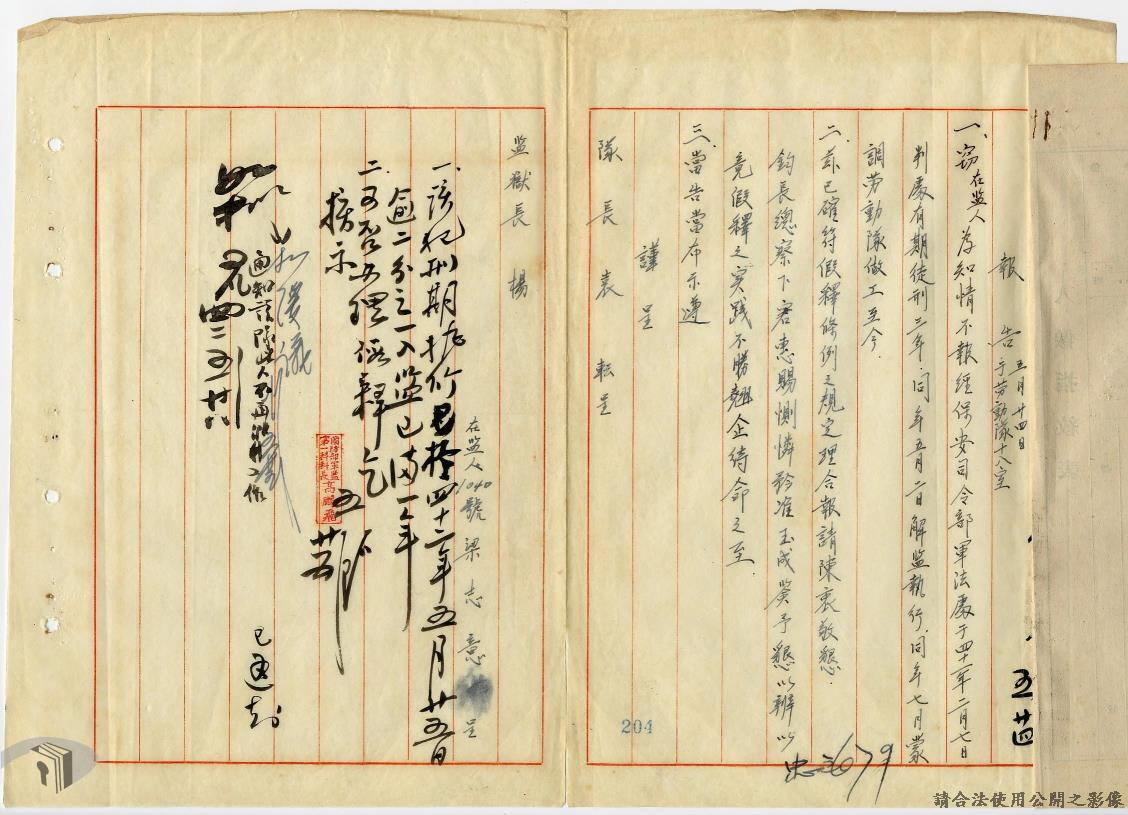 報告 五月廿四日
于勞動隊十八室
一、竊在監人為知情不報經保安司令部軍法處于四十一年二月七日
判處有期徒刑三年.同年五月二日解監執行.同年七月蒙
調勞動隊做工至今.
二.茲已確符假釋條例之規定理合報請陳衷敬懇.
鈞長總察下窘惠賜惻憐矜准玉成簽予懇以辦以
竟假釋之實踐不勝翹企待命之至.
三.當否告當布示遵
謹呈
隊長袁 転呈
監獄長 楊
在監人1040號梁志意 呈
五廿四
204
一、該犯刑期抵於四十二年五月廿五日
逾二分之一入監已滿一年
二、可否办理假釋乞
核示
國防部軍監
第一科科長 高
五
如擬
通知該隊此人不再派外工作
四二、五廿八
已通知
請合法使用公開之影像